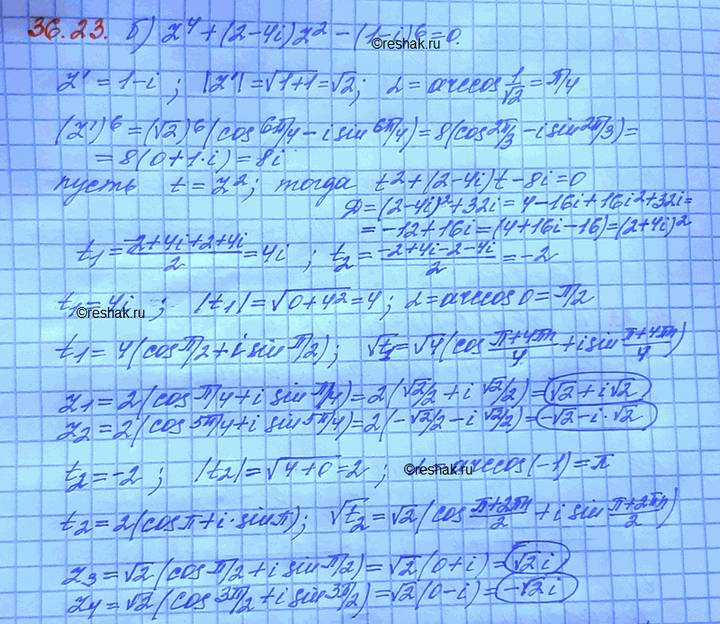 36.23. б) z⁴ + (2-4i)z² - (1-i)⁶ = 0.
©reshak.ru
z' = 1-i ; |z'| = √1+1 = √2; α = arccos 1/√2 = π/4
(z')⁶ = (√2)⁶ (cos 6π/4 - i sin 6π/4) = 8(cos 2π/3 - i sin 2π/3) =
= 8(0+1·i) = 8i
пусть t = z²; тогда t² + (2-4i)t - 8i = 0
D = (2-4i)² + 32i = 4 - 16i + 16i² + 32i =
= -12 + 16i = (4+16i-16) = (2+4i)²
t₁ = (-2+4i+2+4i)/2 = 4i ; t₂ = (-2+4i-2-4i)/2 = -2
t₁ = 4i ; |t₁| = √0+4² = 4 ; α = arccos 0 = π/2
©reshak.ru
t₁ = 4(cos π/2 + i sin π/2); √t₁ = √4 (cos (π+4πn)/4 + i sin (π+4πn)/4)
z₁ = 2(cos π/4 + i sin π/4) = 2(√2/2 + i √2/2) = √2 + i√2
z₂ = 2(cos 5π/4 + i sin 5π/4) = 2(-√2/2 - i √2/2) = -√2 - i·√2
t₂ = -2 ; |t₂| = √4+0 = 2 ; α = arccos(-1) = π
©reshak.ru
t₂ = 2(cos π + i·sin π); √t₂ = √2 (cos (π+2πn)/2 + i sin (π+2πn)/2)
z₃ = √2 (cos π/2 + i sin π/2) = √2 (0+i) = √2 i
z₄ = √2 (cos 3π/2 + i sin 3π/2) = √2 (0-i) = -√2 i